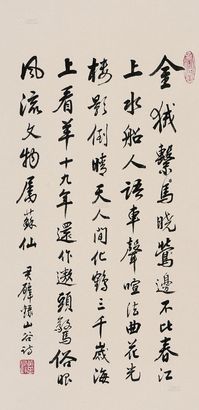 金狨繫馬曉鶯邊不比春江
上水船人語車聲喧法曲花光
樓影倒晴天人間化鶴三千歲海
上看羊十九年還作遨頭驚俗眼
風流文物屬蘇仙
君璧錄山谷詩